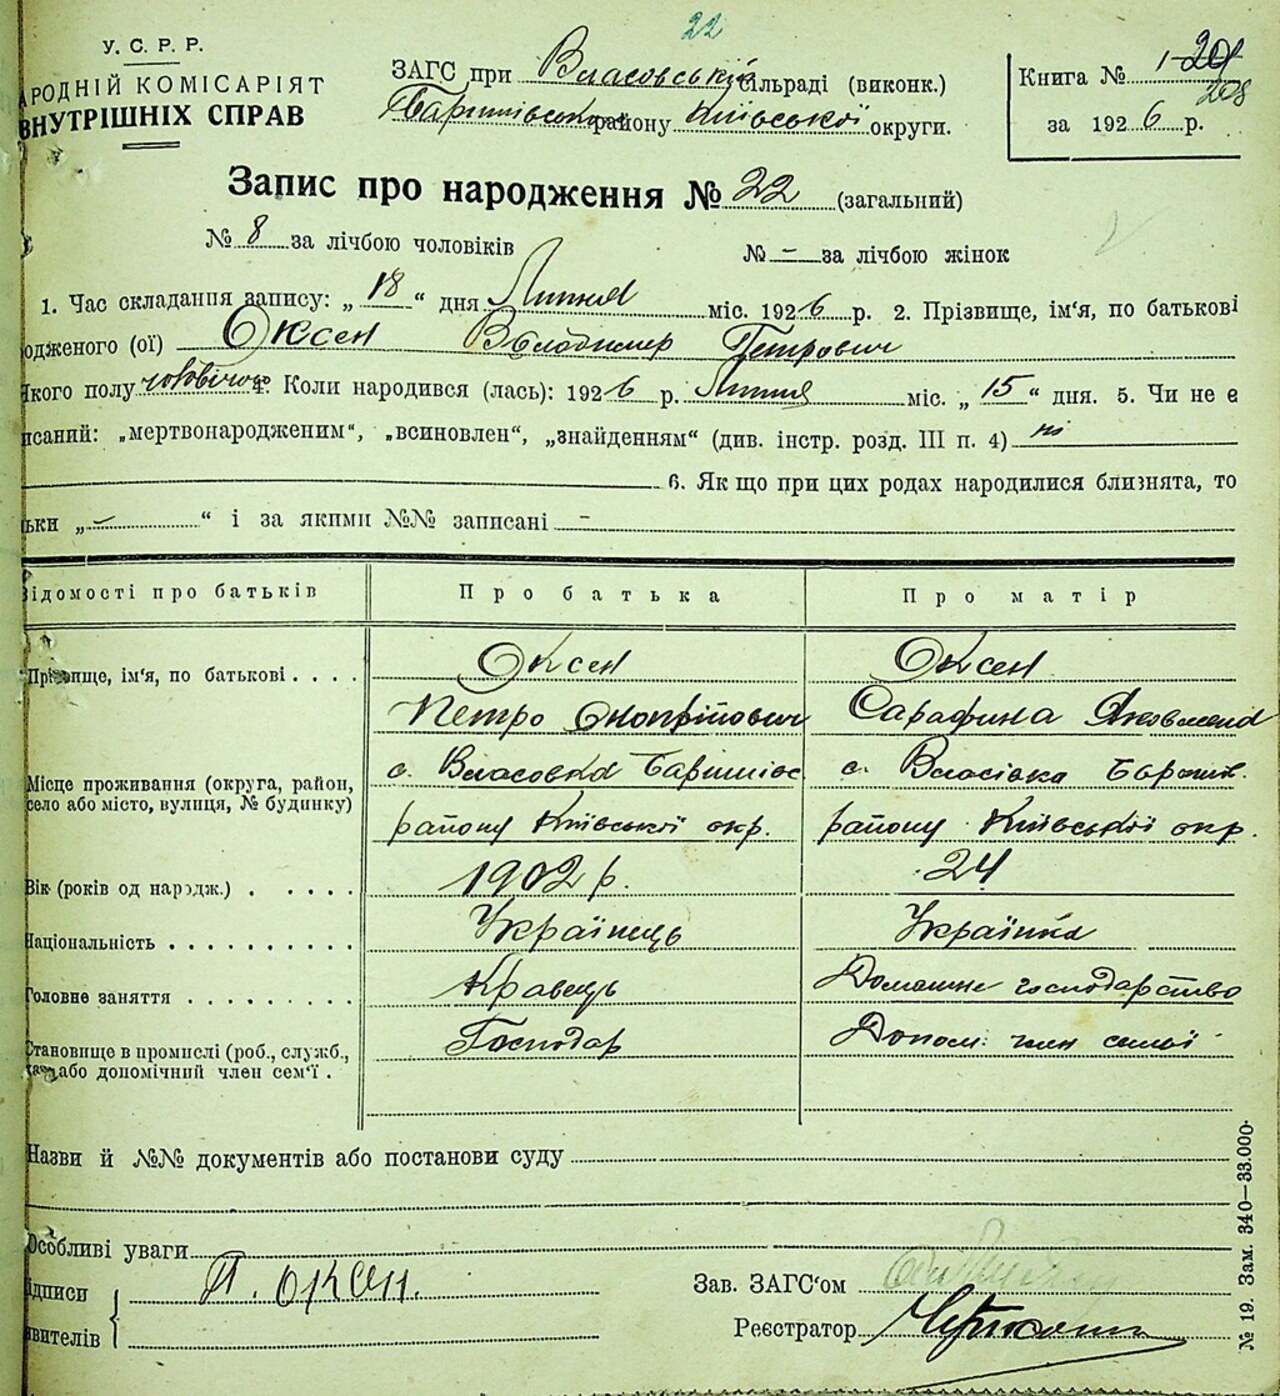 22
У. С. Р. Р.
РОДНІЙ КОМІСАРІЯТ
ВНУТРІШНІХ СПРАВ
ЗАГС при Власовській сільраді (виконк.)
Баришівського району Київської округи.
Книга № 1
208
за 1926 р.
Запис про народження № 22 (загальний)
№ 8 за лічбою чоловіків № – за лічбою жінок
1. Час складання запису: „18“ дня Липня міс. 1926 р. 2. Прізвище, ім'я, по батькові
одженого (ої) Оксен Володимер Петрович
якого полу чоловічого 4. Коли народився (лась): 1926 р. Липня міс. „15“ дня. 5. Чи не є
исаний: „мертвонародженим“, „всиновлен“, „знайденням“ (див. інстр. розд. III п. 4) ні
6. Як що при цих родах народилися близнята, то
ьки „–“ і за якими №№ записані –
Відомості про батьків Про батька Про матір
Прізвище, ім'я, по батькові . . . . Оксен Оксен
Петро Онопрійович Сарафина Яковлевна
Місце проживання (округа, район, с. Власовка Баришівс с. Власівка Баришів.
село або місто, вулиця, № будинку) району Київської окр. району Київської окр.
Вік (років од народж.) . . . . . 1902 р. 24
Національність . . . . . . . . . . Українець Українка
Головне заняття . . . . . . . . . Кравець Домашнє господарство
Становище в промислі (роб., служб., Господар Допом. член семьї
або допомічний член сем'ї .
Назви й №№ документів або постанови суду
Особливі уваги
ідписи П. Оксен.
явителів
Зав. ЗАГС'ом
Реєстратор
№ 19. Зам. 340–33.000